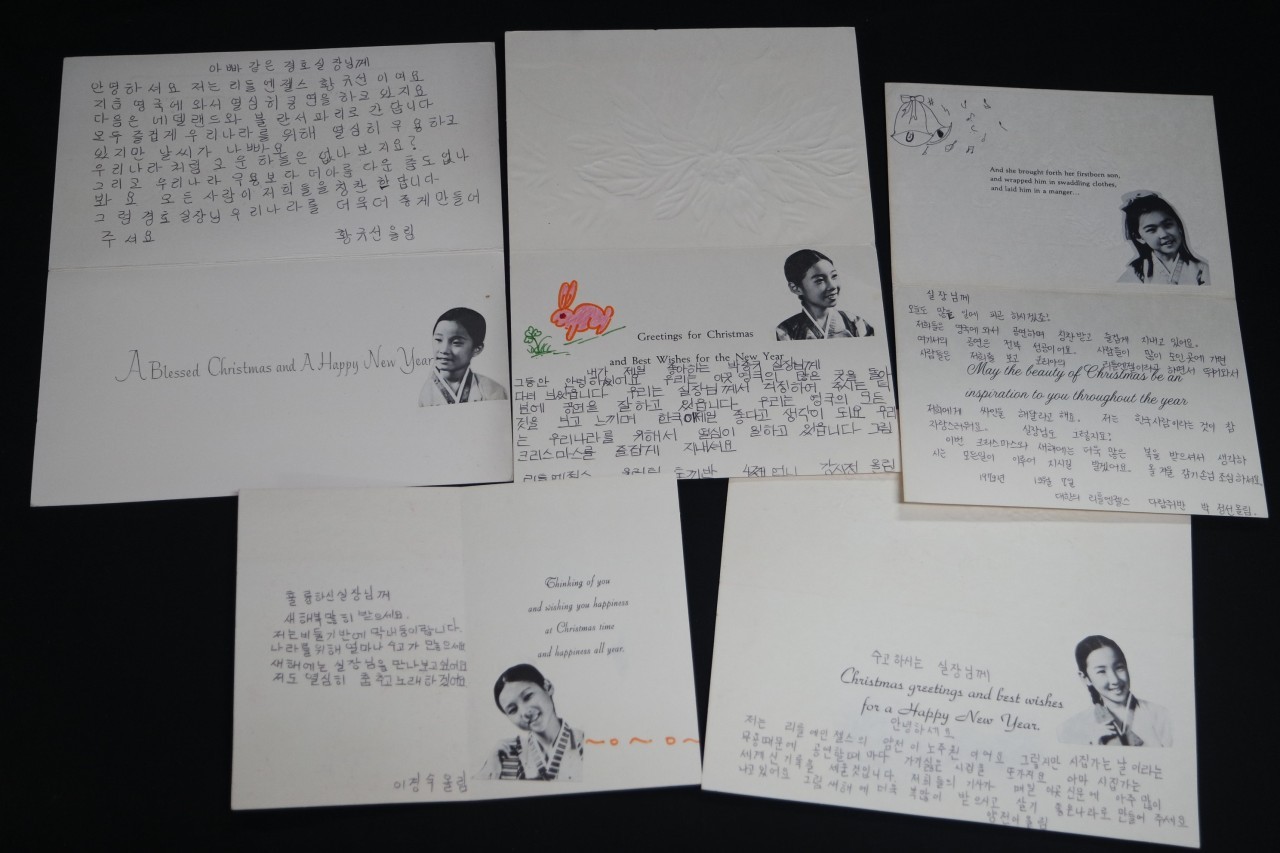 아빠 같은 경호실장님께
안녕하셔요 저는 리틀엔젤스 황규선이여요
지금 영국에 와서 열심히 공연을 하고 있지요
다음은 네델랜드와 불란서 파리로 간답니다
모두 즐겁게 우리나라를 위해 열심히 무용하고
있지만 날씨가 나빠요
우리나라처럼 고운 하늘은 없나 보지요?
그리고 우리나라 무용보다 더 아름다운 춤도 없나
봐요 모든 사람이 저희들을 칭찬한답니다
그럼 경호실장님 우리나라를 더욱더 좋게 만들어
주셔요 황규선 올림
A Blessed Christmas and A Happy New Year
Greetings for Christmas
and Best Wishes for the New Year
내가 제일 좋아하는 박종규 실장님께
그동안 안녕하셨어요 우리는 이곳 영국의 많은 곳을 돌아
다녀 보았습니다 우리는 실장님께서 걱정하여 주시는 덕
분에 공연을 잘하고 있습니다 우리는 영국의 모든
것을 보고 느끼며 한국이 제일 좋다고 생각이 되요 우리
는 우리나라를 위해서 열심히 일하고 있읍니다 그럼
크리스마스를 즐겁게 지내셔요
리틀엔젤스 올림 토끼반
And she brought forth her firstborn son,
and wrapped him in swaddling clothes,
and laid him in a manger...
실장님께
오늘도 많은 일에 피곤 하시겠죠!
저희들은 영국에 와서 공연하며 칭찬받고 즐겁게 지내고 있어요.
여기서의 공연은 전부 성공이여요. 사람들이 많이 모인 곳에 가면
사람들은 저희를 보고 코리아의 리틀엔젤스라고 하면서 뛰어와서
May the beauty of Christmas be an
inspiration to you throughout the year
저희에게 싸인을 해달라고 해요. 저는 한국사람이라는 것이 참
자랑스러워요. 실장님도 그렇지요!
이번 크리스마스와 새해에는 더욱 많은 복을 받으셔서 생각하
시는 모든일이 이루어 지시길 빌겠어요. 올 겨울 감기손님 조심하세요.
대한의 리틀엔젤스 다람쥐반 박 정선 올림.
훌륭하신 실장님께
새해복 많이 받으세요.
저는 비둘기반에 막내둥이랍니다.
나라를 위해 얼마나 수고가 많으세요
새해에는 실장님을 만나보고 싶어요
저도 열심히 춤추고 노래하겠어요
이정숙 올림
Thinking of you
and wishing you happiness
at Christmas time
and happiness all year.
수고 하시는 실장님께
Christmas greetings and best wishes
for a Happy New Year.
안녕하세요
저는 리틀 에인젤스의 양전이 노주원 이어요 그렇지만 시집가는 날 이라는
무용때문에 공연할때 마다 가기싫은 시집을 또 가지요 아마 시집가는
세계 신기록을 세울것입니다. 저희들의 기사가 매일 이곳 신문에 아주 많이
나고있어요 그럼 새해에 더욱 복많이 받으시고 살기 좋은나라로 만들어 주세요
양전이 올림